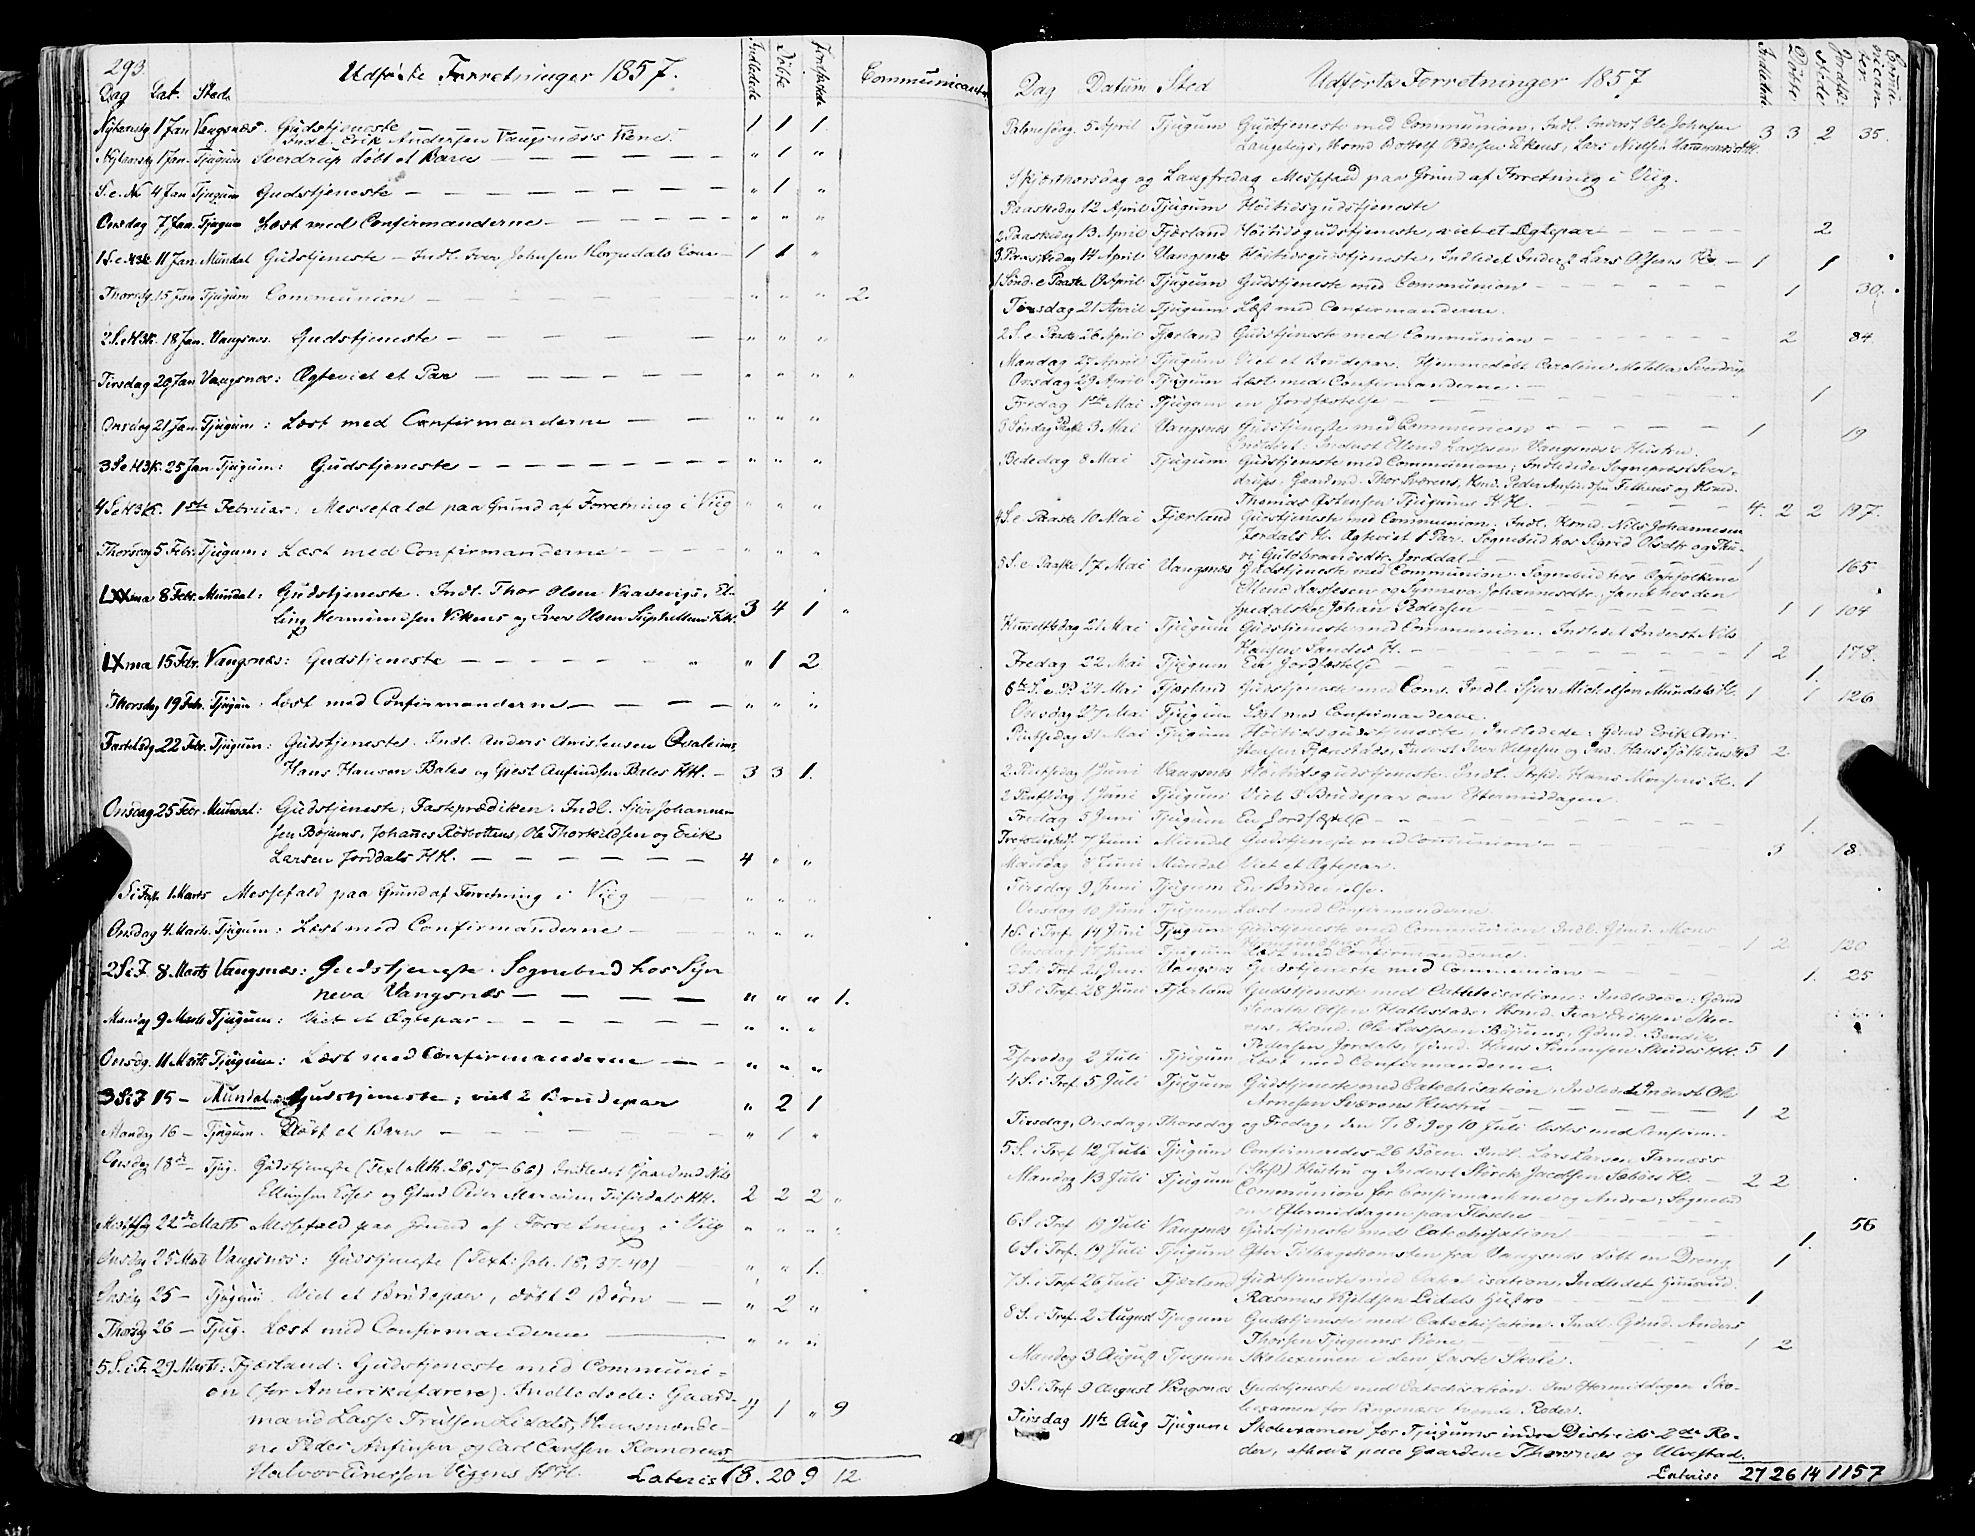 293.
Udførte Forretninger 1857.
Dag Dat. Sted. Indledede Døbte Jordfæstede Communicanter
Nytaarsdg 1 Jan Vangsnæs. Gudstjeneste 1 1 1.
Indl. Erik Andersen Vangsnæs's Kone.
Nytaarsdg 1 Jan. Tjugum Sverdrup døbt et Barn — " 1 "
S. e. N. 4 Jan Tjugum Gudstjeneste — " 1 "
Onsdag 7 Jan. Tjugum Læst med Confirmanderne — " " "
1 S. e. H3K. 11 Jan. Mundal Gudstjeneste — Indl. Iver Johnsen Kone — 1 1 "
Thorsdg. 15 Jan Tjugum Communion — " " " 2.
2 S. e. H3K. 18 Jan. Vangsnæs. Gudstjeneste — " " "
Tirsdag 20 Jan Vangsnæs: Ægteviet et Par — " " " "
Onsdag 21 Jan. Tjugum: Læst med Confirmanderne — " " "
3 S e H3K. 25 Jan. Tjugum: Gudstjeneste — " " "
4 S e H3K. 1ste Februar: Messefald paa Grund af Forretning i Viig " " "
Thorsdag 5 Febr. Tjugum: Læst med Confirmanderne — " " "
LXXma 8 Febr. Mundal: Gudstjeneste. Indl. Thor Olsen
ling Hermundsen og Iver Olsen HH. 3 4 1 "
LXma 15 Febr. Vangsnæs: Gudstjeneste — " 1 2
Thorsdag 19 Febr. Tjugum: Læst med Confirmanderne — " " "
Fastelsdg 22 Febr. Tjugum: Gudstjeneste. Indl. Anders Christensen
Hans Hansen Bales og Giest Anfindsen Bales HH. — 3 3 1.
Onsdag 25 Febr. Mundal: Gudstjeneste; Fasteprædiken. Indl. Johanne-
sen Bøjums, Johannes, Ole Thorkildsen og Erik
Larsen Jorddals HH. — 4 " "
S i Fast. 1 Marts Messefald paa Grund af Forretning i Viig — " " "
Onsdag 4. Marts. Tjugum: Læst med Confirmanderne — " " "
2 S i F. 8 Marts Vangsnæs: Gudstjeneste. Sognebud hos Syn
neva Vangsnæs — " " " 1.
Mandag 9 Marts Tjugum: Viet et Ægtepar — " " "
Onsdg. 11 Marts Tjugum: Læst med Confirmanderne — " " "
3 S i F 15 — Mundal: Gudstjeneste; viet 2 Brudepar " 2 1
Mandag 16 — Tjugum. Døbt et Barn — " 1 "
Onsdag 18de — Tjug. Gudstjeneste (Text Mth. 26, 57-66) Indledet Gaardmd. Nils
Ellingsen Esses og Gbmd Peder HH. 2 2 2 "
22de Marts Messefald paa Grund af Forretning i Viig " " " "
Onsdag 25 Marts Vangsnæs: Gudstjeneste (Text: Joh. 18, 37-40) — " " 1.
Onsdg 25 — Tjugum. Viet et Brudepar, døbt 2 Børn — " 2 "
Thorsdg 26 — Tjug. Læst med Confirmanderne — " " "
5 S. i F. 29 Marts: Fjærland: Gudstjeneste med Communi-
on (for Amerikafarere). Indledede: Gaard- 4 1 " 9
mand Lasse Lidals, Huusmænde-
ne Peder Anfinsen og Carl Carlsen
Halvor Einersen Vigens HH. Lateris 18. 20 9 12.
Dag Datum Sted Udførte Forretninger 1857 Indledede Døbte Jordfæstede Communicanter
Palmesøndg. 5 April Tjugum Gudstjeneste med Communion. Indl. Inderst Ole Johnsen 3 3 2 35.
Husmd Botolf Pedersen, Lars Nielsen HH.
Skjærthorsdag og Langfredag Messefald paa Grund af Forretning i Viig.
Paaskedag 12 April Tjugum Høitidsgudstjeneste
2 Paaskedag 13 April Fjærland Høitidsgudstjeneste, viet et Ægtepar — 2
3 Paaskedag 14 April Vangsnæs Høitidsgudstjeneste. Indledet Inderst Lars Olsens — 1 1
1 Sønd. e Paaske 19 April Tjugum Gudstjeneste med Communion — 1 30.
Tirsdag 21 April Tjugum Læst med Confirmanderne.
2 S. e. Paaske 26 April Fjærland Gudstjeneste med Communion — 2 84.
Mandag 27 April Tjugum Viet et Brudepar. Hjemmedøbt Caroline Sverdrup
Onsdag 29 April Tjugum Læst med Confirmanderne. —
Fredag 1ste Mai Tjugum en Jordfæstelse — 1
3 Søndag Paaske 3 Mai Vangsnæs Gudstjeneste med Communion — 1 19
Indledet: Inderst Ellend Lassesen Vangsnæs's Hustru.
Bededag 8 Mai Tjugum Gudstjeneste med Communion; Indledede Sognepræst Sver-
drups, Gaardmd. Thor, Hmd. Peder Anfindsen og Husmd.
Thomas Østensen Tjugums HH. — 4. 2 2 197.
4 S. e. Paaske 10 Mai Fjærland Gudstjeneste med Communion. Indl. Husmd. Nils Johannesen
Jordals H. Ægteviet 1 Par. Sognebud hos Sigrid Olsdtr og Thu-
ri Guldbrandsdtr. Jorddal — 1 165
5 S. e Paaske 17 Mai Vangsnæs Gudstjeneste med Communion. Sognebud hos Ægtefolkene
Ellend Lassesen og Synneva Johannesdtr, samt hos den
spedalske Johan Pedersen — 1 1 104
Himmelfdag 21 Mai Tjugum Gudstjeneste med Communion. Indledet Inderst Nils
Hansen Sandes H. — 1 2 178.
Fredag 22 Mai Tjugum En Jordfæstelse — 1.
6te S. e. P 24 Mai Fjærland Gudstjeneste med Com. Indl. Michelsen Mundals H. 1 1 126
Onsdag 27 Mai Tjugum Læst med Confirmanderne.
Pintsedag 31 Mai Tjugum Høitidsgudstjeneste, Indledede: Gbmd Erik
Inderst Iver Helgesen og Hans 3 2
2 Pintsedag 1 Juni Vangsnæs Høitidsgudstjeneste. Indl. Hans Monsens H. 1
2 Pintsedag 1 Juni Tjugum Viet 2 Brudepar om Eftermiddagen.
Fredag 5 Juni Tjugum En Jordfæstelse — 1.
7 Juni Mundal Gudstjeneste med Communion — 3 18
Mandag 8 Juni Mundal Viet et Ægtepar.
Tirsdag 9 Juni Tjugum En Brudevielse.
Onsdag 10 Juni Tjugum Læst med Confirmanderne
1 S. i Tref. 14 Juni Tjugum Gudstjeneste med Communion. Indl. Gbmd. Mons
1 2 120
Onsdag 17 Juni Tjugum Læst med Confirmanderne.
2 S. i Tref 21 Juni Vangsnæs Gudstjeneste med Communion — 1. 25
3 S. i Tref. 28 Juni Fjærland Gudstjeneste med Catechisation: Indledede: Gbmd
Olsen Hatlestads, Husmd. Iver Eriksen
Husmd. Ole Lassesen Bøjums, Gbmd. Bendik
Pedersen Jordals, Gbmd. Hans Simonsen HH. 5 1
Thorsdag 2 Juli Tjugum Læst med Confirmanderne.
4 S. i Tref. 5 Juli Tjugum Gudstjeneste med Catechisation, Indledet Inderst Ole
Arnesen Sværens Hustru — 1 2
Tirsdag, Onsdag, Thorsdag og Fredag, den 7, 8, 9 og 10 Juli læstes med Confirm.
5 S. i Tref 12 Juli Tjugum Confirmeredes 26 Børn. Indl. Lars Larsen Farnæs's
Hustru og Inderst Jacobsen Sæbøes H. — 2 2
Mandag 13 Juli Tjugum Communion for Confirmanterne og Andre; Sognebud
om Eftermiddagen paa — 56
6 S. i Tref 19 Juli Vangsnæs Gudstjeneste med Catechisation — 1.
6 S. i Tref. 19 Juli Tjugum Efter Tilbagekomsten fra Vangsnæs døbt en Dreng. 1
7 S. i Tref 26 Juli Fjærland Gudstjeneste med Catechisation, Indledet Huusmd.
Rasmus Kjeldsen Lidals Hustro — 1
8 S. i Tref. 2 August Tjugum Gudstjeneste med Catechisation. Indl. Gbmd. Anders
Thorsen Tjugums Kone — 1 2
Mandag 3 August Tjugum Skoleexamen i den faste Skole.
9 S. i Tref 9 August Vangsnæs Gudstjeneste med Catechisation. Om Eftermiddagen Sko-
leexamen for Vangsnæs tvende Roder.
Tirsdag 11te Aug Tjugum Skoleexamen for Tjugums indre Districts 2de Ro-
der, afholdt paa Gaardene Thorsnæs og Ulvestad.
Lateris: 27 26 14 1157